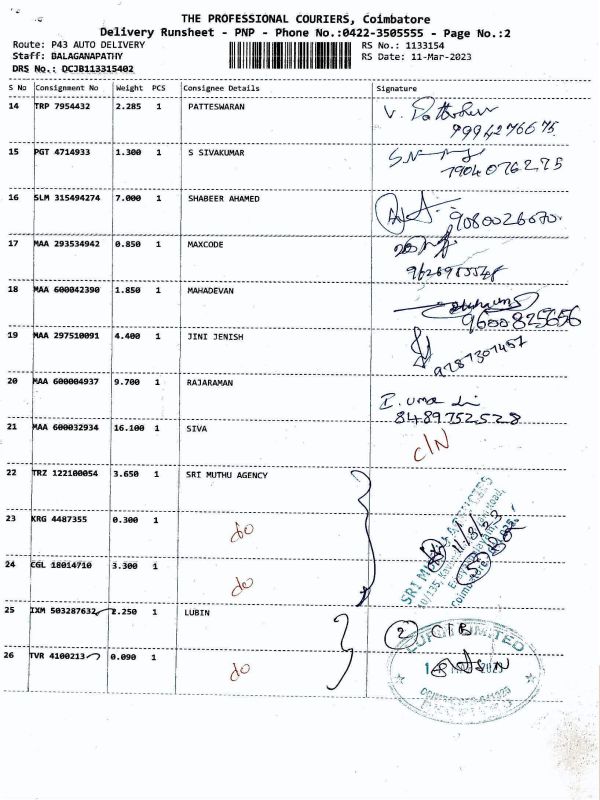 THE PROFESSIONAL COURIERS, Coimbatore
Delivery Runsheet - PNP - Phone No.:0422-3505555 - Page No.:2
Route: P43 AUTO DELIVERY
Staff: BALAGANAPATHY
DRS No.: DCJB113315402
RS No.: 1133154
RS Date: 11-Mar-2023
S No Consignment No Weight PCS Consignee Details Signature
14 TRP 7954432 2.285 1 PATTESWARAN
9994276675
15 PGT 4714933 1.300 1 S SIVAKUMAR
7904076275
16 SLM 315494274 7.000 1 SHABEER AHAMED
9080026070
17 MAA 293534942 0.850 1 MAXCODE
18 MAA 600042390 1.850 1 MAHADEVAN
9600825656
19 MAA 297510091 4.400 1 JINI JENISH
9787307457
20 MAA 600004937 9.700 1 RAJARAMAN
8489752528
21 MAA 600032934 16.100 1 SIVA C/N
22 TRZ 122100054 3.650 1 SRI MUTHU AGENCY
23 KRG 4487355 0.300 1 do
24 CGL 18014710 3.300 1 do
25 IXM 503287632 2.250 1 LUBIN
26 TVR 4100213 0.090 1 do